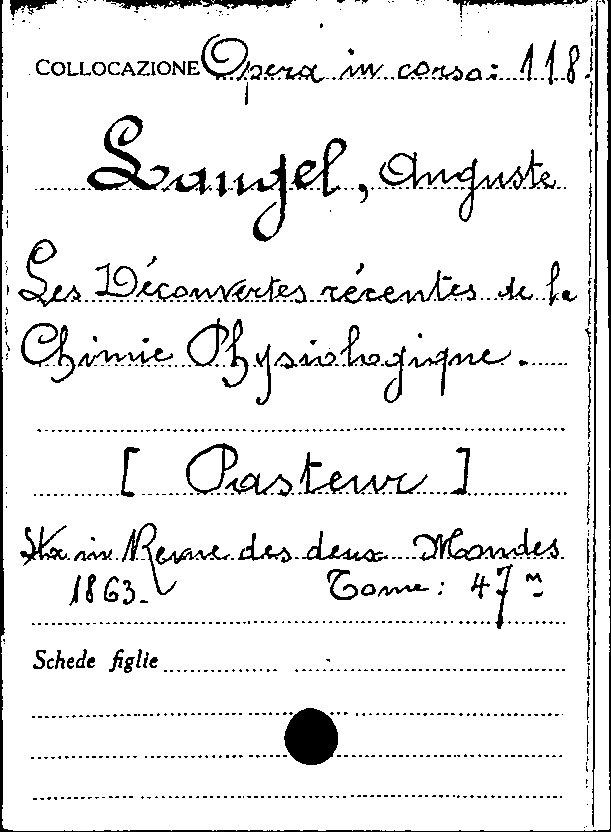 COLLOCAZIONE Opera in corso: 118.
Laugel, Auguste
Les Découvertes récentes de la
Chimie Physiologique.
[ Pasteur ]
Sta in Revue des deux Mondes
1863. Tome: 47 m
Schede figlie